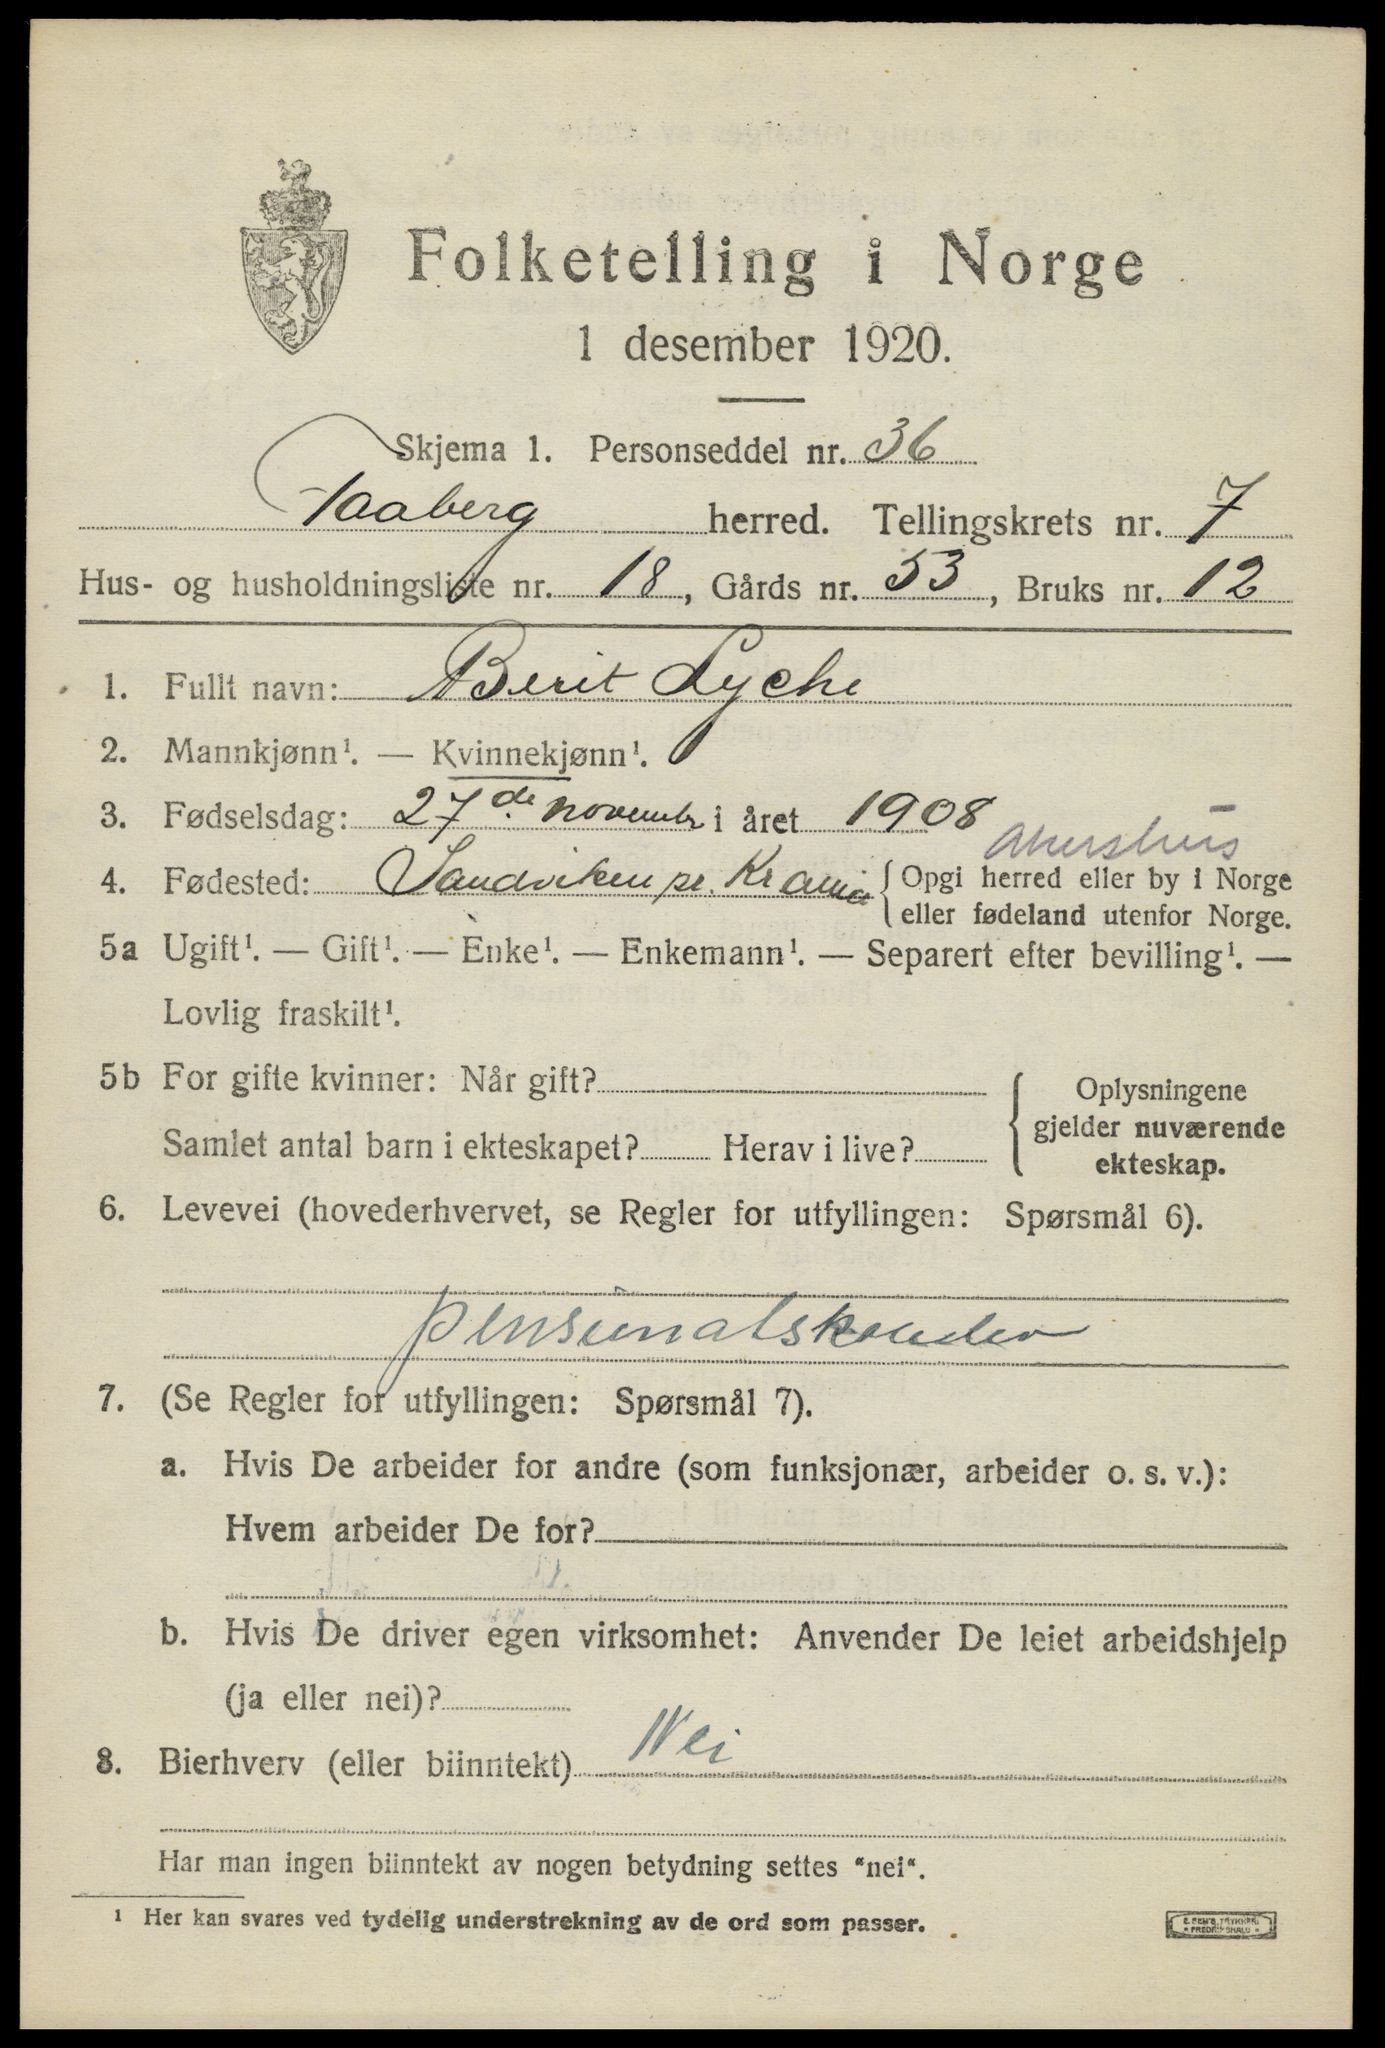 Folketelling i Norge
1 desember 1920.
Skjema 1. Personseddel nr. 36
Faaberg herred. Tellingskrets nr. 7
Hus- og husholdningsliste nr. 18, Gårds nr. 53, Bruks nr. 12
1. Fullt navn: Berit Lyche
2. Mannkjønn¹. — Kvinnekjønn¹.
3. Fødselsdag: 27de november i året 1908
Akershus
4. Fødested: Sandviken pr. Kr.ania { Opgi herred eller by i Norge
eller fødeland utenfor Norge.
5a Ugift¹. — Gift¹. — Enke¹. — Enkemann¹. — Separert efter bevilling¹. —
Lovlig fraskilt¹.
5b For gifte kvinner: Når gift?
Samlet antal barn i ekteskapet? Herav i live?
{ Oplysningene
gjelder nuværende
ekteskap.
6. Levevei (hovederhvervet, se Regler for utfyllingen: Spørsmål 6).
7. (Se Regler for utfyllingen: Spørsmål 7).
a. Hvis De arbeider for andre (som funksjonær, arbeider o. s. v.):
Hvem arbeider De for?
b. Hvis De driver egen virksomhet: Anvender De leiet arbeidshjelp
(ja eller nei)?
8. Bierhverv (eller biinntekt) Nei
Har man ingen biinntekt av nogen betydning settes "nei".
¹ Her kan svares ved tydelig understrekning av de ord som passer.
E. SEM'S TRYKKERI
FREDRIKSHALD